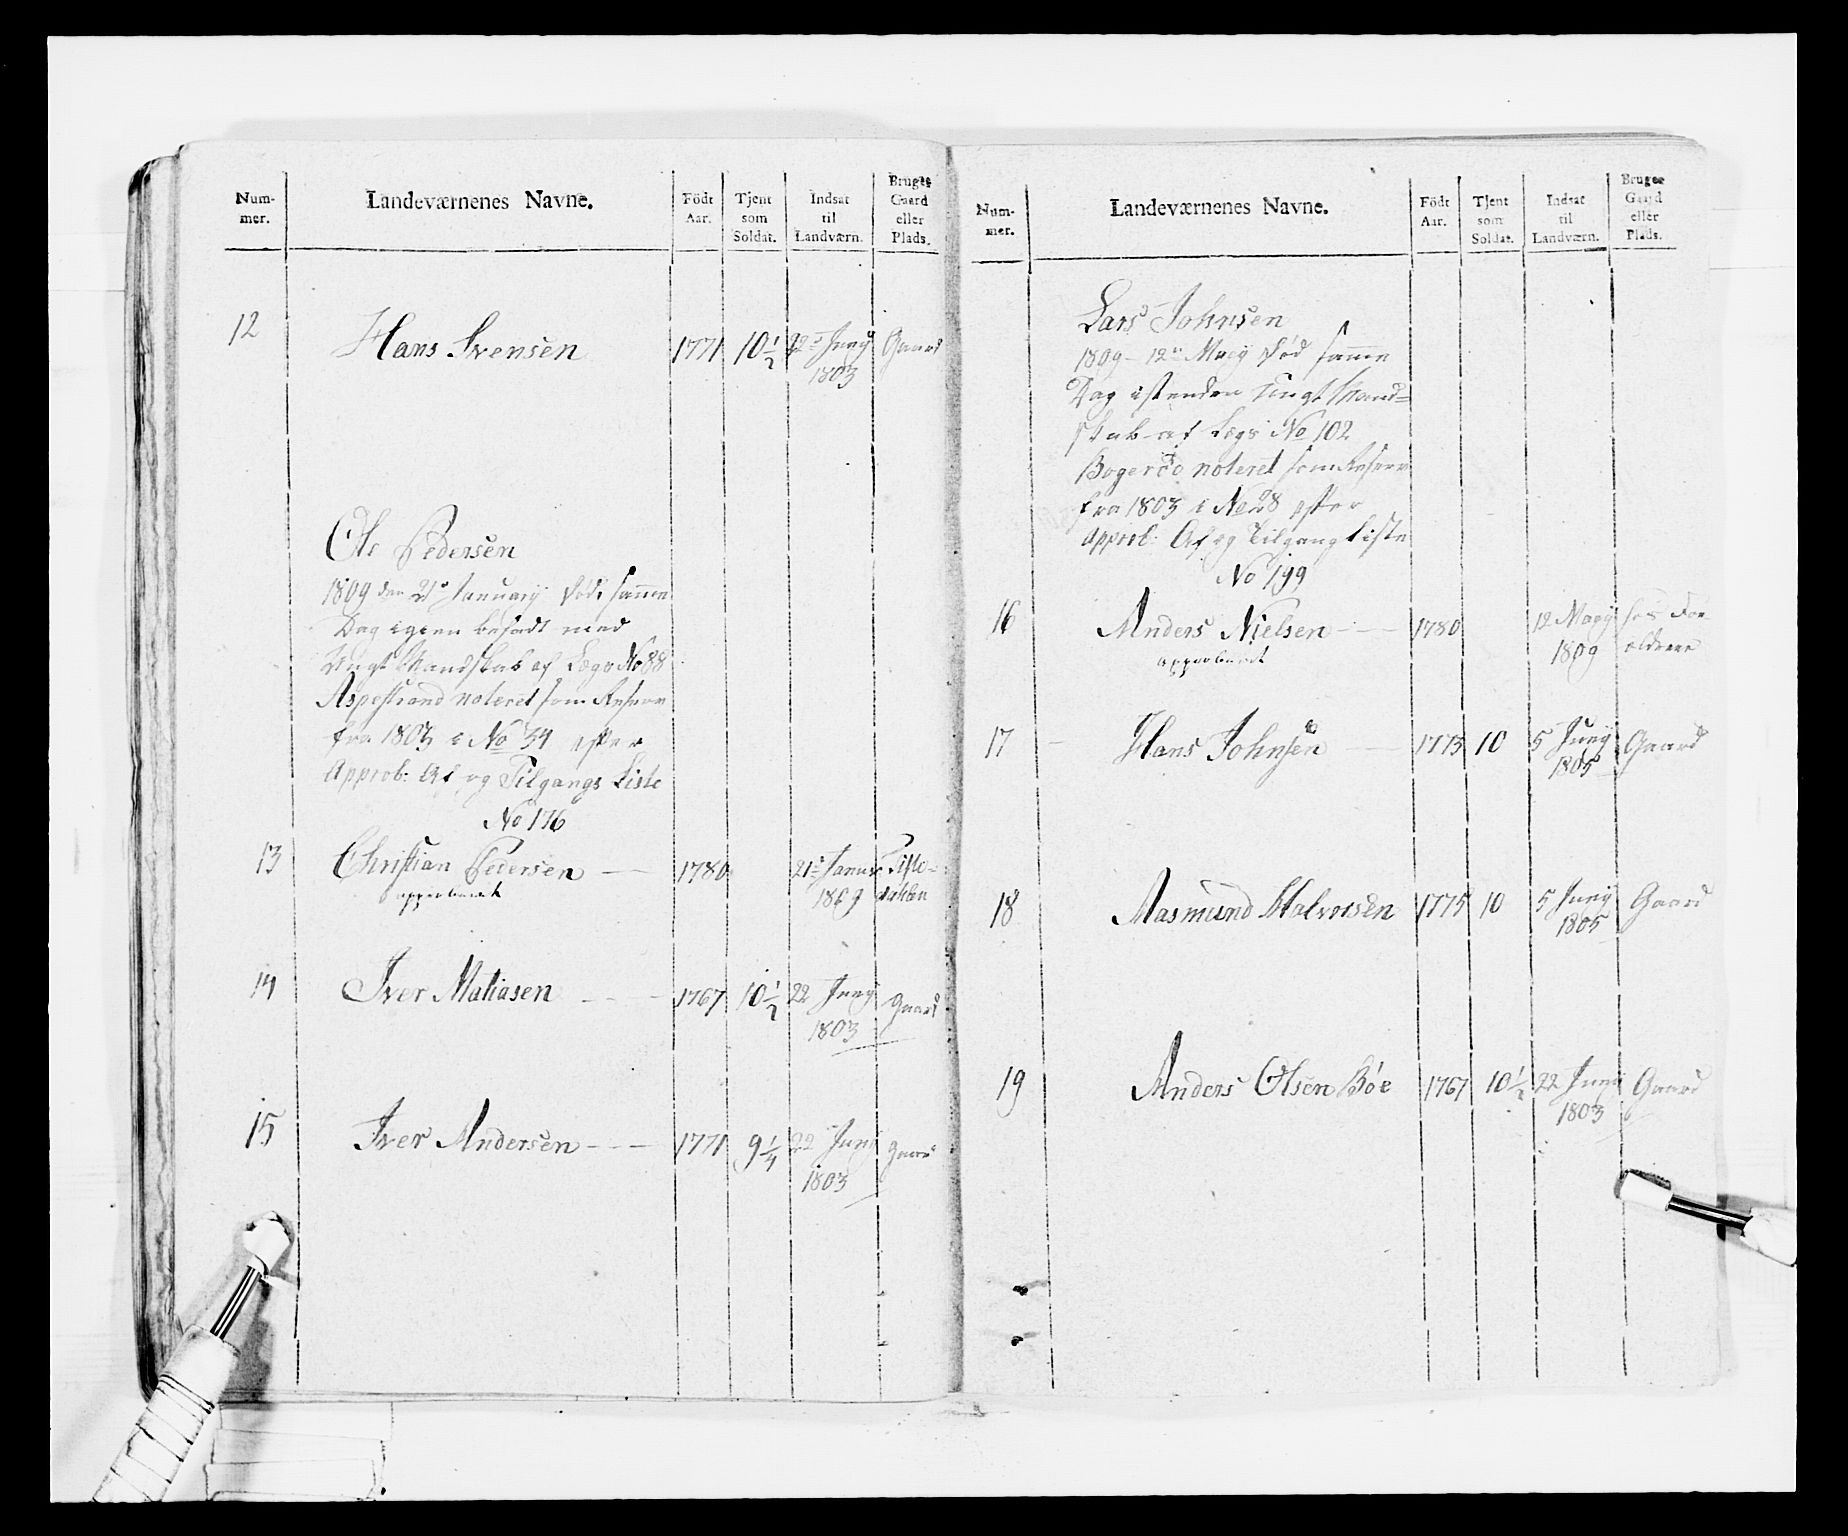 Num-
mer.
Landeværnenes Navne.
Födt
Aar.
Tjent
som
Soldat.
Indsat
til
Landværn.
Bruger
Gaard
eller
Plads.
12 Hans Svensen 1771 10 1/2 22 Juny Gaard
1803
Ole Pedersen
1809 den 21 January død, samme
Dag igien besadt med
Ungt Mandskab af Lægs No 88
Aspestrand noteret som Reserv
fra 1803 i No 34 efter
Approb: Af og Tilgangs Liste
No 176
13 Christian Pedersen 1780 21 Januar Tiste-
approberet 1809 dahlen
14 Iver Matiasen 1767 10 1/2 22 Juny Gaard
1803
15 Iver Andersen 1771 9 1/4 22 Juny Gaard
1803
Num-
mer.
Landeværnenes Navne.
Födt
Aar.
Tjent
som
Soldat.
Indsat
til
Landværn.
Bruger
Gaard
eller
Plads.
Lars Johnsen
1809 12 Maey død samme
Dag istenden Ungt Mand=
skab af Lægs No 102
noteret som Reserv
fra 1803 i No 28 efter
Approb: Af og Tilgang Liste
No 199
16 Anders Nielsen 1780 12 Maey hos For
approberet 1809 ældrene
17 Hans Johnsen 1773 10 5 Juny Gaard
1805
18 Aasmund Halvorsen 1775 10 5 Juny Gaard
1805
19 Anders Olsen Bøe 1767 10 1/2 22 Juny Gaard
1803